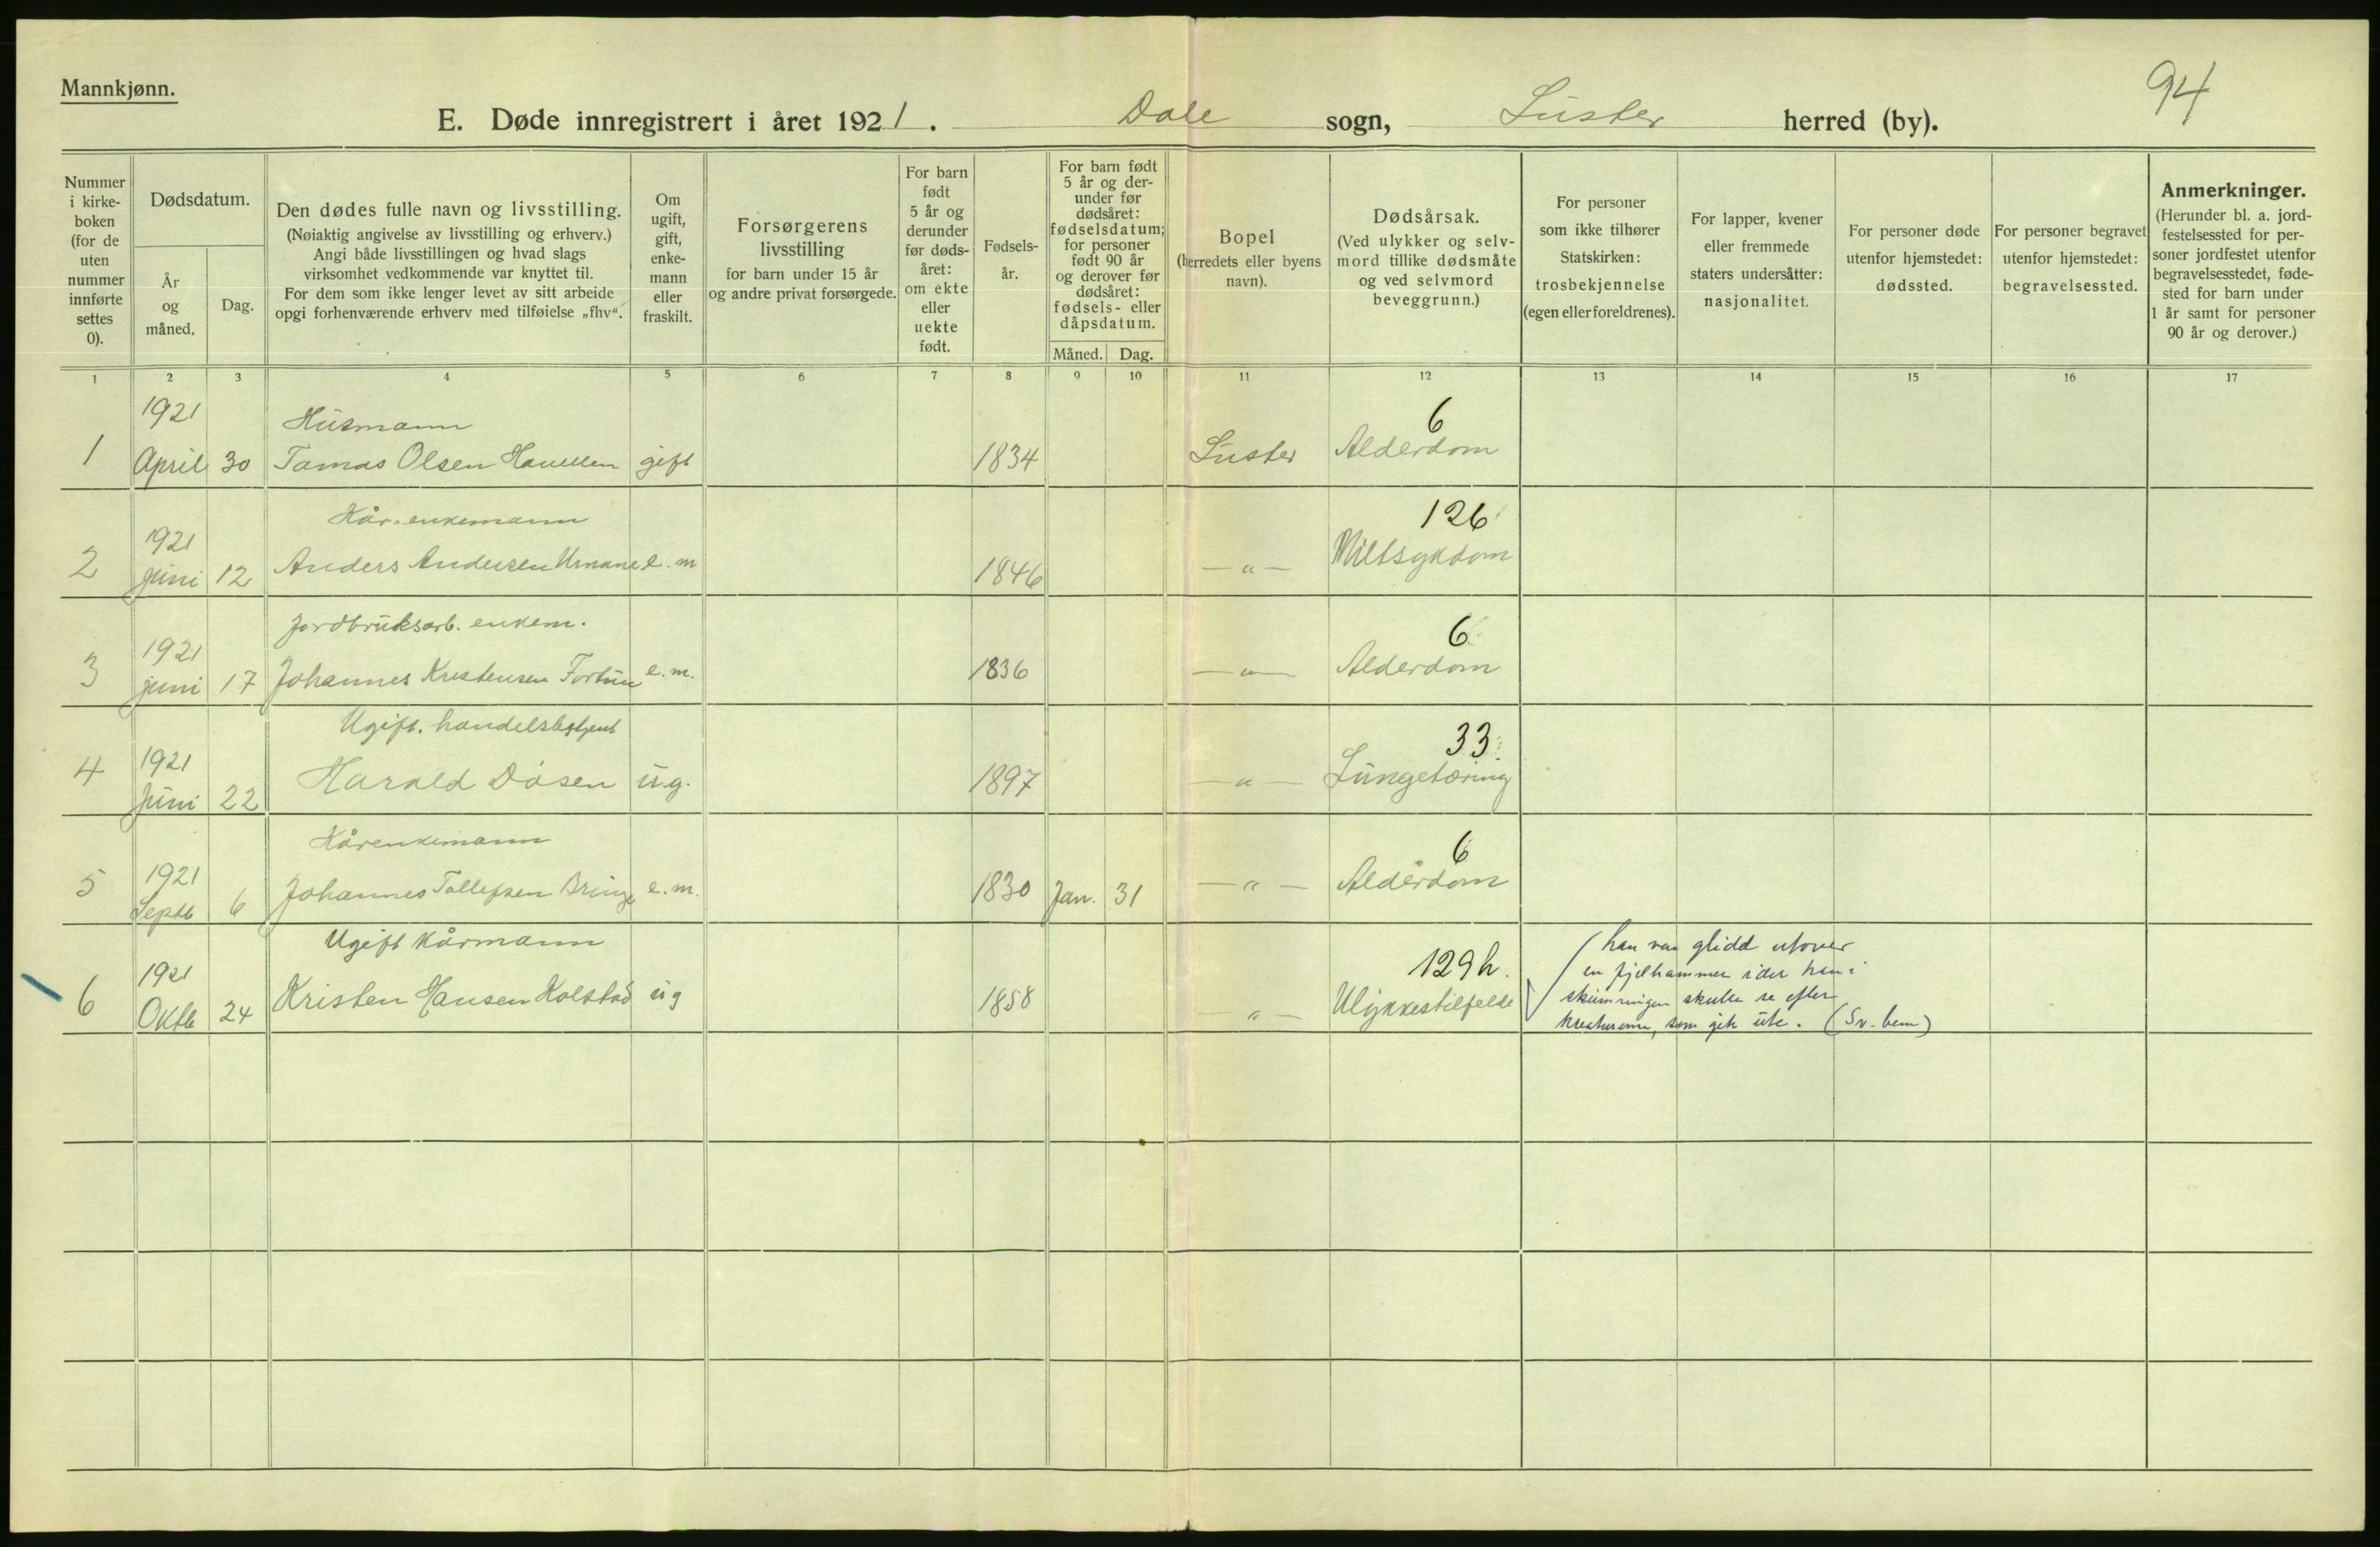 Mannkjønn.
94
E. Døde innregistrert i året 1921. Dale sogn, Luster herred (by).
Nummer i kirke-boken (for de uten nummer innførte settes 0).
Dødsdatum.
År og måned.
Dag.
Den dødes fulle navn og livsstilling.
(Nøiaktig angivelse av livsstilling og erhverv.)
Angi både livsstillingen og hvad slags
virksomhet vedkommende var knyttet til.
For dem som ikke lenger levet av sitt arbeide
opgi forhenværende erhverv med tilføielse „fhv“.
Om ugift, gift, enke-mann eller fraskilt.
Forsørgerens
livsstilling
for barn under 15 år
og andre privat forsørgede.
For barn født 5 år og derunder før døds-året: om ekte eller uekte født.
Fødsels-år.
For barn født 5 år og der-under før dødsåret: fødselsdatum; for personer født 90 år og derover før dødsåret: fødsels- eller dåpsdatum.
Måned. Dag.
Bopel
(herredets eller byens
navn).
Dødsårsak.
(Ved ulykker og selv-
mord tillike dødsmåte
og ved selvmord
beveggrunn.)
For personer
som ikke tilhører
Statskirken:
trosbekjennelse
(egen eller foreldrenes).
For lapper, kvener
eller fremmede
staters undersåtter:
nasjonalitet.
For personer døde
utenfor hjemstedet:
dødssted.
For personer begravet
utenfor hjemstedet:
begravelsessted.
Anmerkninger.
(Herunder bl. a. jord-
festelsessted for per-
soner jordfestet utenfor
begravelsesstedet, føde-
sted for barn under
1 år samt for personer
90 år og derover.)
1 2 3 4 5 6 7 8 9 10 11 12 13 14 15 16 17
1921 Husmann 6
1 April 30 Tamas Olsen gift 1834 Luster Alderdom
Kår.enkemann 126
1921
2 juni 12 Anders Andersen e.m 1846 — " — Miltsykdom
Jordbruksarb. enkem. 6
1921
3 juni 17 Johannes Kristensen Fortun e.m. 1836 — " — Alderdom
Ugift. handelsbetjent 33
1921
4 Juni 22 Harald Døsen ug. 1897 — " — Lungetæring
Kårenkemann 6
1921
5 Septb 6 Johannes Tollefsen Bringe e.m. 1830 Jan. 31 — " — Alderdom
Ugift kårmann 129h.
1921
6 Oktb 24 Kristen Hansen Kolstad ug 1858 — " — Ulykkestilfelde
(han var glidd utover
en fjelhammer idet han i
skumringen skulle se efter
kreaturerne, som gik ute. (Sv. bem)